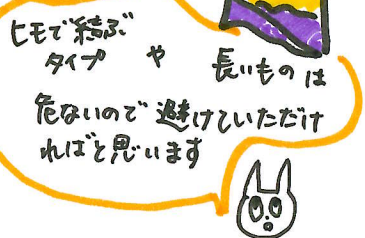 ヒモで結ぶ
タイプ や 長いものは
危ないので避けていただけ
ればと思います